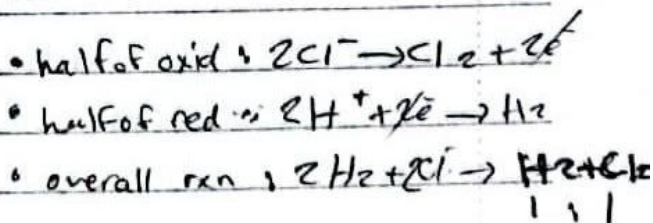 • half of oxid : 2Cl⁻ → Cl2 + 2e⁻
• half of red : 2H⁺ + 2e⁻ → H2
• overall rxn : 2H2 + 2Cl⁻ → H2 + Cl2